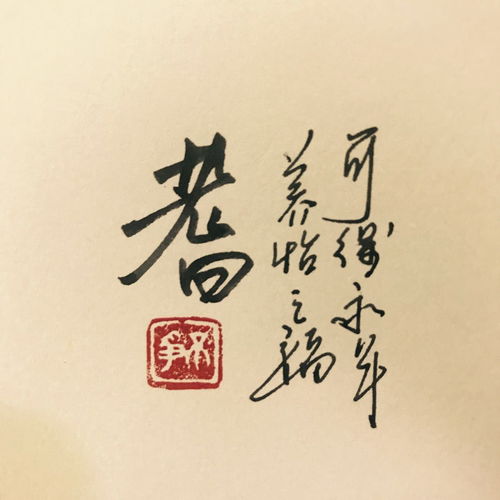 耆
养怡之福
可得永年
不争